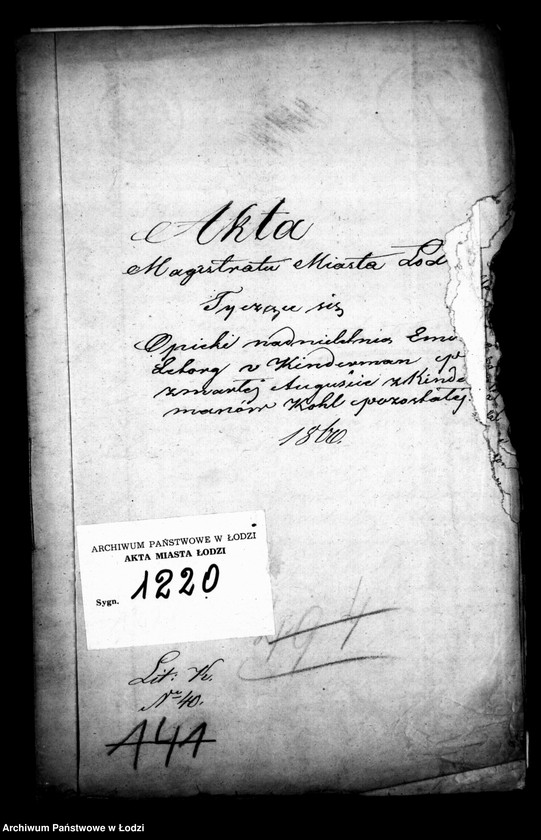 Akta
Magistratu Miasta Łod
Tyczące się
Opieki nad nieletnią Emo
Leborg v Kinderman
zmarłej Auguście z Kinde
manów Kohl pozostałej
1860.
ARCHIWUM PAŃSTWOWE W ŁODZI
AKTA MIASTA ŁODZI
Sygn. 1220
494
Lit: K.
No 40.
A4A
Archiwum Państwowe w Łodzi
Archiwum Państwowe w Łodzi